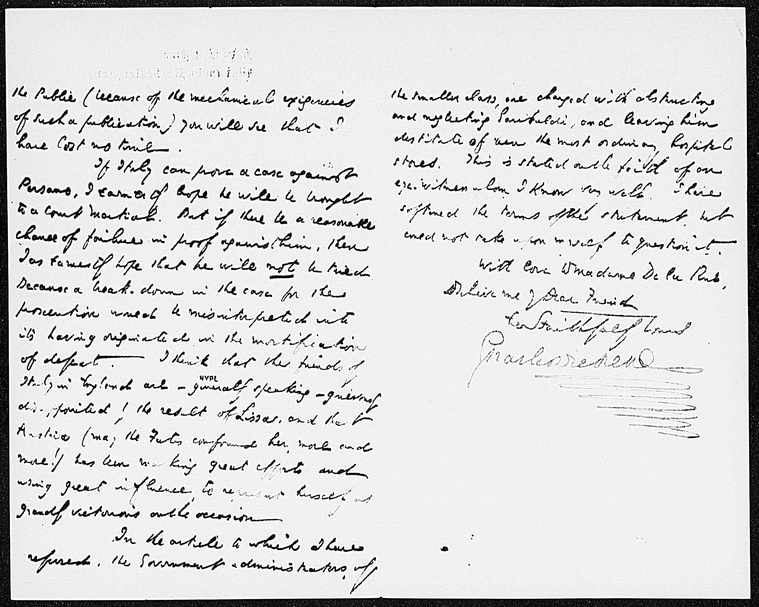 the Public (because of the mechanical exigencies
of such a publication) you will see that I
have lost no time.
If Italy can prove a case against
Persano, I earnestly hope he will be brought
to a Court Martial. But if there be a reasonable
chance of failure in proof against him, then
I as earnestly hope that he will not be tried.
Because a break-down in the case for the
prosecution would be misinterpreted into
its having originated in the mortification
of defeat. I think that the friends of
Italy in England are - generally speaking - grievously
NYPL
disappointed by the result of Lissa, and that
Austria (may the Fates confound her, more and
more!) has been making great efforts and
using great influence, to represent herself as
grandly victorious on the occasion
In the article to which I have
referred, the Government administrators, of
the smaller class, are charged with obstructing
and neglecting Garibaldi, and leaving him
destitute of even the most ordinary hospital
stores. This is stated on the faith of an
eyewitness whom I know very well. I have
softened the terms of the statement, but
could not take upon myself to question it.
With love to Madame De La Rue,
Believe me my Dear Friend
Ever Faithfully Yours
Charles Dickens